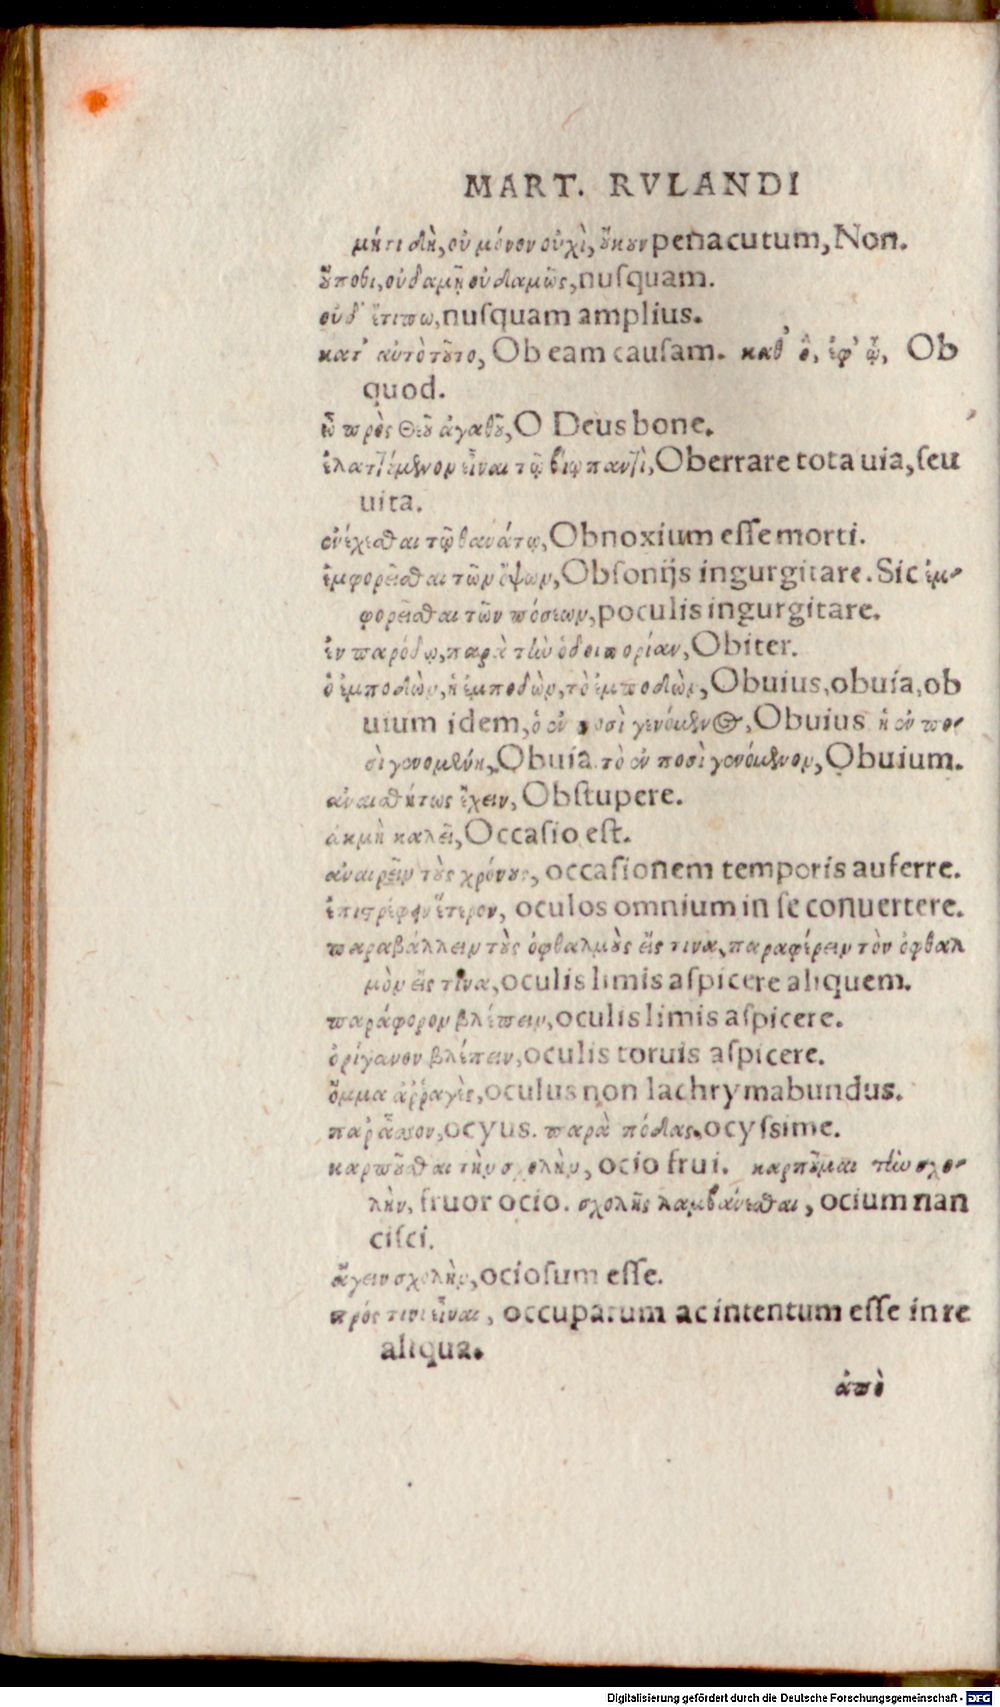 MART. RVLANDI
μήτι δὴ, οὐ μόνον οὐχὶ, ȣ̓κȣν penacutum, Non.
ȣ̓́ποθι, οὐδαμῆ οὐδαμῶς, nuſquam.
οὐδ' ἔτι πω, nuſquam amplius.
κατ' αὐτὸ τȣ͂το, Ob eam cauſam. καθ' ὃ, ἐφ' ᾧ, Ob
quod.
ὦ πρὸς Θεȣ͂ ἀγαθȣ͂, O Deus bone.
ἐλαττώμενον εἶναι τῷ βίῳ παντὶ, Oberrare tota uia, ſeu
uita.
ἐνέχεσθαι τῷ θανάτῳ, Obnoxium eſſe morti.
ἐμφορεῖσθαι τῶν ὄψων, Obſonijs ingurgitare. Sic ἐμ-
φορεῖσθαι τῶν πόσεων, poculis ingurgitare.
ἐν παρόδῳ, παρὰ τὴν ὁδοιπορίαν, Obiter.
ὁ ἐμποδὼν, ἡ ἐμποδὼν, τὸ ἐμποδὼν, Obuius, obuia, ob
uium idem, ὁ ἐν ποσὶ γενόμενος, Obuius ἡ ἐν πο-
σὶ γενομένη, Obuia τὸ ἐν ποσὶ γενόμενον, Obuium.
ἀναισθήτως ἔχειν, Obſtupere.
ἀκμὴ καλεῖ, Occaſio eſt.
ἀναιρεῖν τȣ̀ς χρόνȣς, occaſionem temporis auferre.
ἐπιστρέφειν ἕτερον, oculos omnium in ſe conuertere.
παραβάλλειν τȣ̀ς ὀφθαλμȣ̀ς εἴς τινα, παραφέρειν τὸν ὀφθαλ
μὸν εἴς τινα, oculis limis aſpicere aliquem.
παράφορον βλέπειν, oculis limis aſpicere.
ὀρίγανον βλέπειν, oculis toruis aſpicere.
ὄμμα ἀῤῥαγὲς, oculus non lachrymabundus.
παρᾶσσον, ocyus. παρὰ πόδας, ocyſsime.
καρπȣ͂σθαι τὴν σχολὴν, ocio frui. καρπȣ͂μαι τὴν σχο-
λὴν, fruor ocio. σχολῆς λαμβάνεσθαι, ocium nan
ciſci.
ἄγειν σχολὴν, ocioſum eſſe.
πρός τινι εἶναι, occupatum ac intentum eſſe in re
aliqua.
ἀπὸ
Digitalisierung gefördert durch die Deutsche Forschungsgemeinschaft - DFG